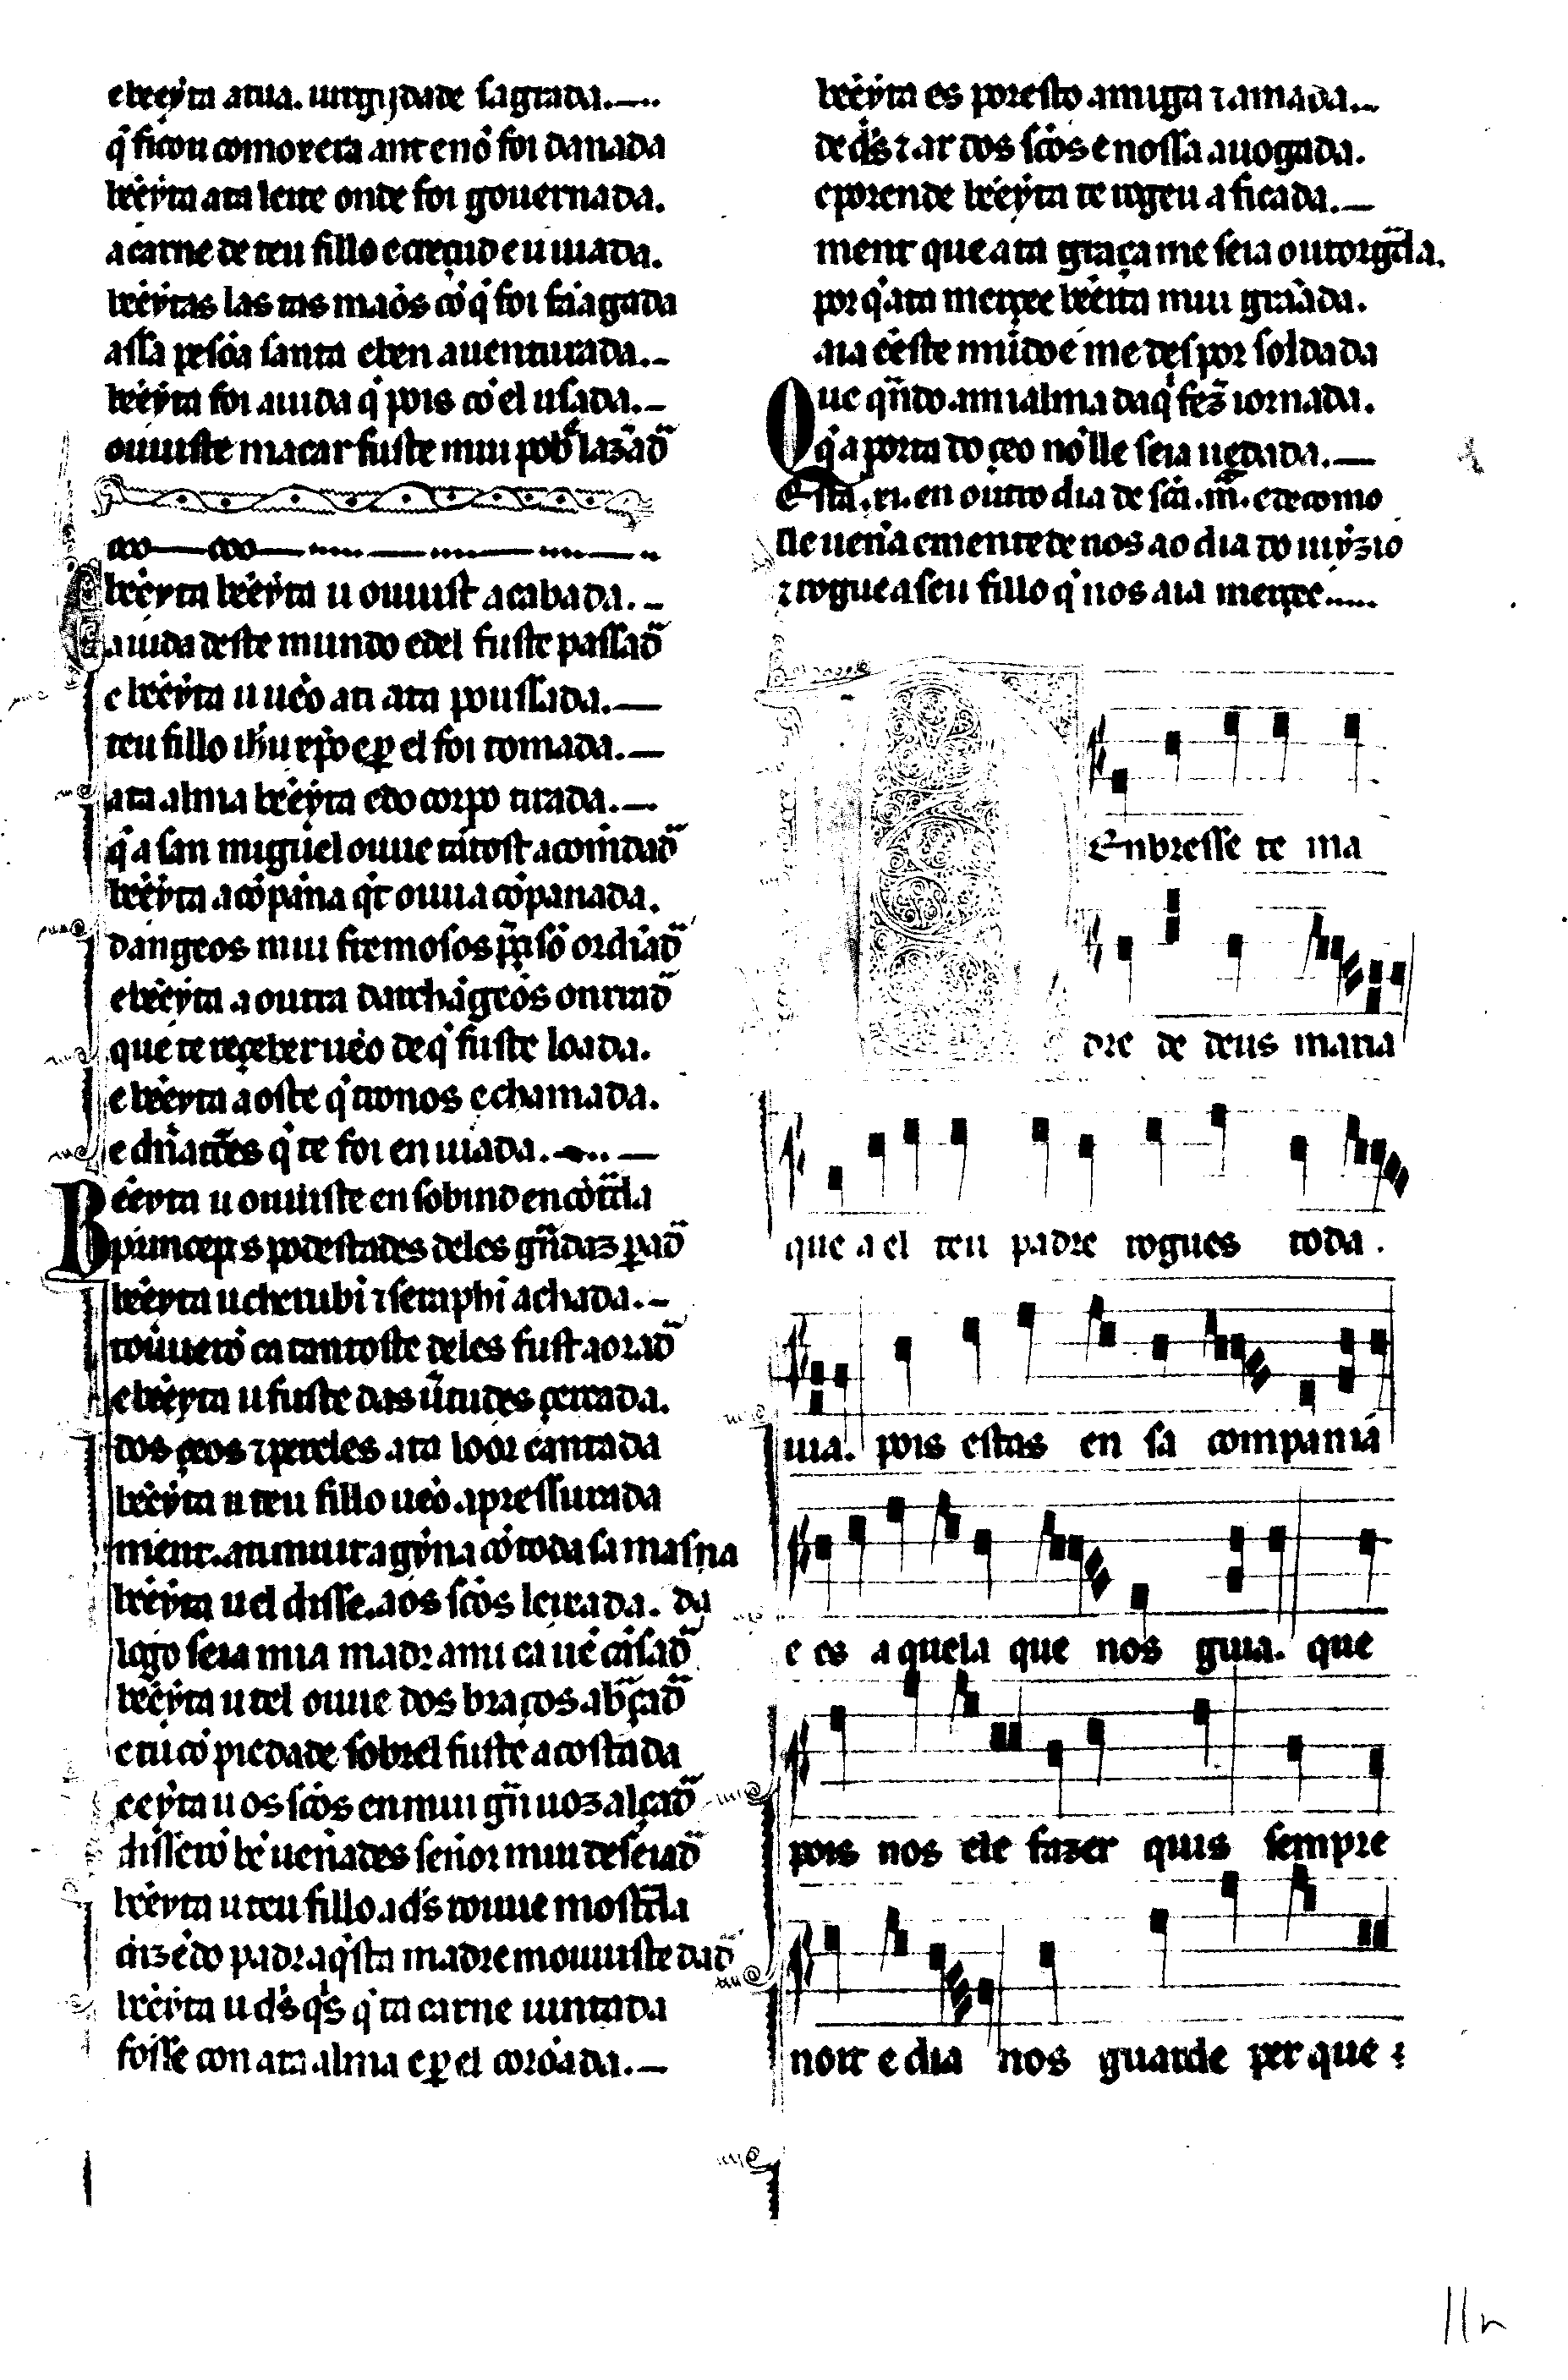 e bẽeyta a tua. uirgijdade sagrada.
q̇ ficou como xera ant e nõ foi danada
bẽeyta a ta leite onde foi gouernada.
a carne de teu fillo e creçud e uiuada.
bẽeytas las tas mãos cõ q̇ foi faagada
a ssa pesõa santa e ben auenturada.
bẽeyta foi a uida q̇ pois cõ el usada.
ouuiste macar fuste mui pob̃ lazrad̃
bẽeyta bẽeyta u ouuist acabada.
a uida deste mundo e del fuste passad̃
e bẽeyta u uẽo a ti a ta poussada.
teu fillo ihũ xp̃o e ꝑ el foi tomada.
a ta alma bẽeyta e do corpo tirada.
q̇ a san miguel ouue tãtost acomẽdad̃
bẽeyta a cõpãna q̇t ouu acõpanada.
dangeos mui fremosos ordĩad̃
e bẽeyta a outra darchãgeos onrrad̃
que te reçeber uẽo de q̇ fuste loada.
e bẽeyta a oste q̇ tronos e chamada.
e dñatões q̇ te foi enuiada.
Bẽeyta u ouuiste en sobind encõtrada
princeps podestades deles grñ daz ꝑad̃
bẽeyta u cherubĩ ⁊ seraphĩ achada.
touuerõ ca tantoste deles fust aorad̃
e bẽeyta u fuste das ũtudes çercada.
dos çeos ⁊ per eles a ta loor cantada
bẽeyta u teu fillo uẽo apressurada
ment. a ti muit agỹna cõ toda sa masna
bẽeyta u el disse. aos sc̃os leixada. da
logo seia mia madr a mi ca uẽ cãsad̃
bẽeyta u tel ouue dos braços abr̃çad̃
e tu cõ piedade sobrel fuste acostada
eeyta u os sc̃os en mui grñ uoz alçad̃
disserõ bẽ uennades sennor mui deseiad̃
bẽeyta u teu fillo a ds̃ touue mostrada
dizẽdo padr aq̇sta madre mouuiste dad̃
bẽeyta u ds̃ q̇s q̇ ta carne iuntada
foisse con a ta alma e ꝑ el corõada.
bẽeyta es por esto amiga ⁊ amada.
de ds̃ ⁊ ar dos sc̃os e nossa auogada.
e porende bẽeyta te rogeu aficada.
ment que a ta graça me seia outorgada.
por q̇ a ta merçee bẽeita mui grãada.
aia ẽ este mũdo e me des por soldada
Que qñdo mi alma daq̇ fez̃ iornada.
q̇ a porta do çeo nõ lle seia uedada.
Esta .xi. en outro dia de scã .mã. e de como
lle uenna emente de nos ao dia do iuỹzio
⁊ rogue a seu fillo q̇ nos aia merçee
Enbresse te ma
dre de deus maria
que a el teu padre rogues toda.
uia. pois estas en sa compannia
e es aquela que nos guia. que
pois nos ele fazer quis sempre
noit e dia nos guarde per que
11r